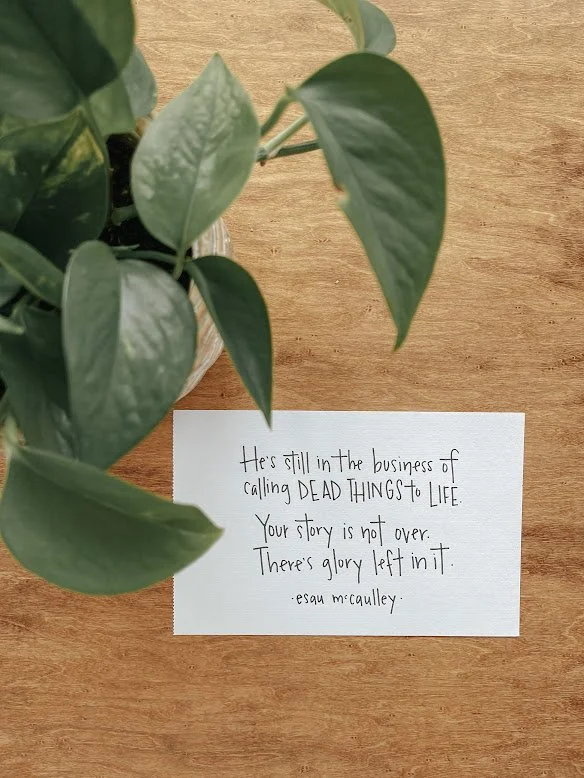 He's still in the business of
calling DEAD THINGS to LIFE.
Your story is not over.
There's glory left in it.
·esau mccaulley·